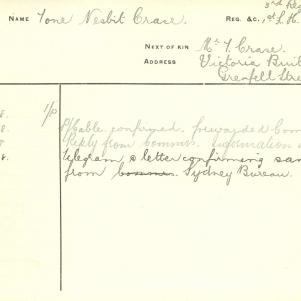 3rd Reg
NAME Tone Nesbit Crase. REG. &C., 1st L. H.
NEXT OF KIN Mr T. Crase.
ADDRESS Victoria Buil
Grenfell Stre
8. 1/p P/Cable confirmed. forwarded Com
8. Reply from commn. Information
Telegram & letter confirming sam
8. from commn. Sydney Bureau.